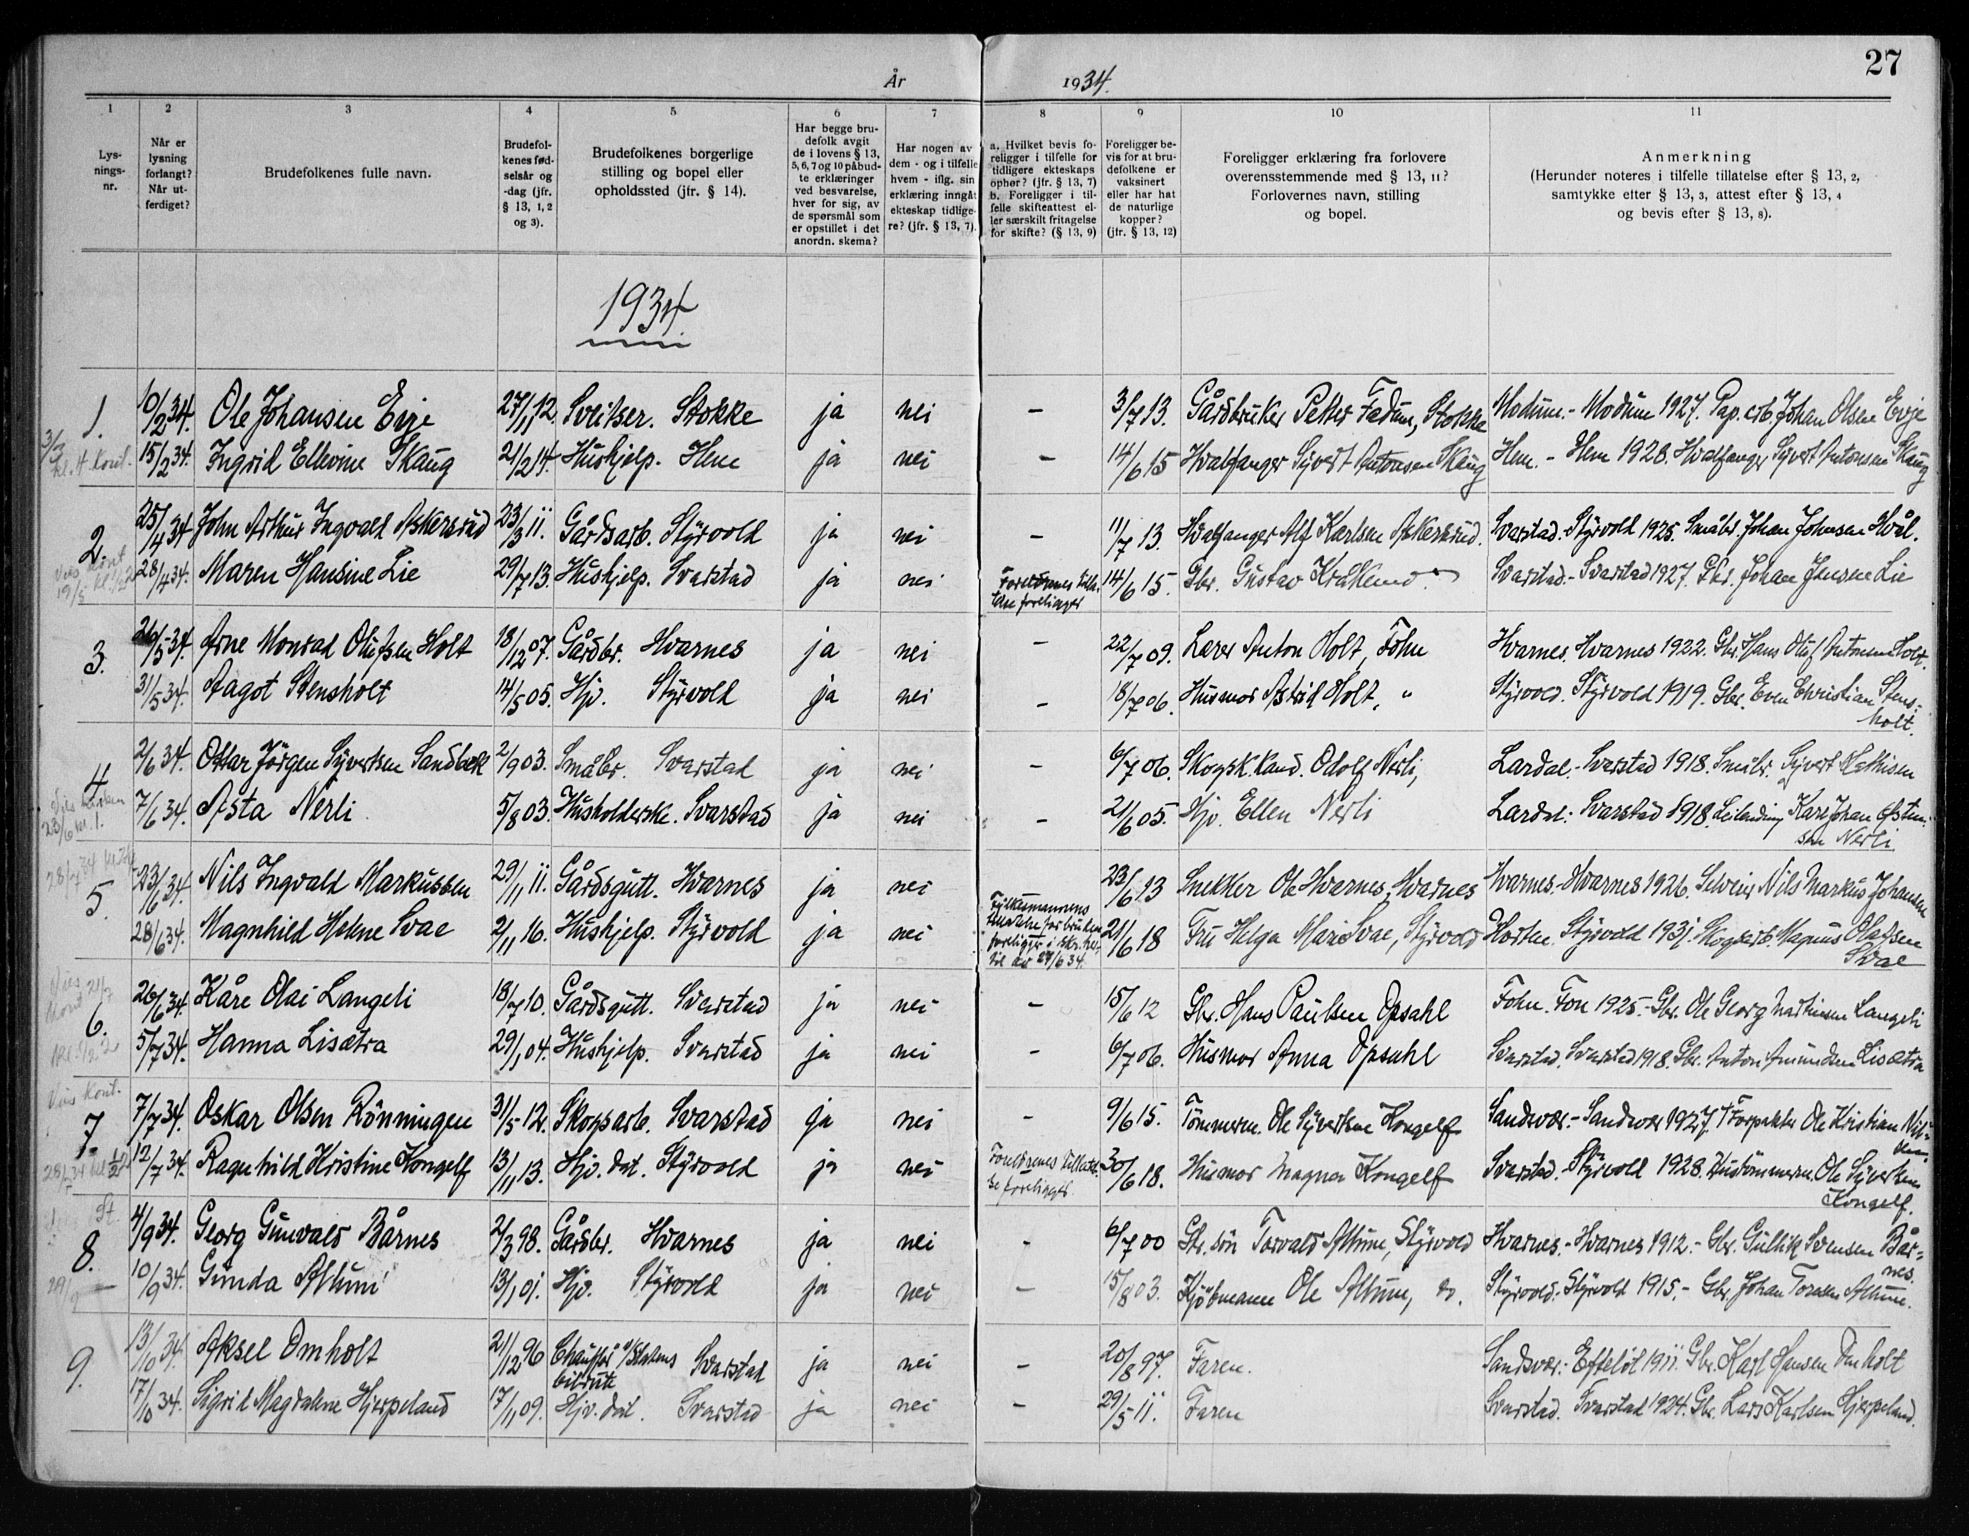 27
År 1934.
1 2 3 4 5 6 7 8 9 10 11
Lysningsnr.
Når er lysning forlangt? Når utferdiget?
Brudefolkenes fulle navn.
Brudefolkenes fødselsår og -dag (jfr. § 13, 1, 2 og 3).
Brudefolkenes borgerlige stilling og bopel eller opholdssted (jfr. § 14).
Har begge brudefolk avgit de i lovens § 13, 5, 6, 7 og 10 påbudte erklæringer ved besvarelse, hver for sig, av de spørsmål som er opstillet i det anordn. skema?
Har nogen av dem - og i tilfelle hvem - iflg. sin erklæring inngåt ekteskap tidligere? (jfr. § 13, 7).
a. Hvilket bevis foreligger i tilfelle for tidligere ekteskaps ophør? (jfr. § 13, 7) b. Foreligger i tilfelle skifteattest eller særskilt fritagelse for skifte? (§ 13, 9)
Foreligger bevis for at brudefolkene er vaksinert eller har hat de naturlige kopper? (jfr. § 13, 12)
Foreligger erklæring fra forlovere overensstemmende med § 13, 11? Forlovernes navn, stilling og bopel.
Anmerkning (Herunder noteres i tilfelle tillatelse efter § 13, 2, samtykke efter § 13, 3, attest efter § 13, 4 og bevis efter § 13, 8).
1934.
1. 10/2 34. Ole Johansen Evje 27/11 12. Sveitser. Stokke ja nei — 3/7 13. Gårdbruker Petter Fadum, Stokke Modum. - Modum 1927. Pap. arb. Johan Olsen Evje
15/2 34. Ingrid Ellevine Skaug 21/2 14. Hushjelp. Hem ja nei — 14/6 15 Hvalfanger Syvert Antonsen Skaug Hem. - Hem 1928. Hvalfanger Syvert Antonsen Skaug
2. 25/4 34 John Arthur Ingvald Askersrud 23/3 11. Gårdsarb. Styrvold ja nei — 11/7 13. Hvalfanger Alf Karlsen Askersrud. Svarstad. Styrvold 1925. Småbr. Johan Johnsen Hvål.
28/4 34. Maren Hansine Lie 29/7 13. Hushjelp. Svarstad ja nei Foreldrenes tillatelse foreligger 14/6 15. Gbr. Gustav Svarstad. - Svarstad 1927. Gbr. Johan Jensen Lie
3. 26/5 34. Arne Monrad Olufsen Holt 18/12 07. Gårdbr. Hvarnes ja nei — 22/7 09. Lærer Anton Holt, Fohn Hvarnes. Hvarnes 1922. Gbr. Hans Oluf Antonsen Holt.
31/5 34. Aagot Stensholt 14/5 05. Hjv. Styrvold ja nei — 18/7 06. Husmor Astrid Holt, " Styrvold. Styrvold 1919. Gbr. Even Christian Stensholt.
4 2/6 34. Ottar Jörgen Syvertsen Sandbæk 2/9 03. Småbr. Svarstad ja nei — 6/7 06. Skogsk. kand. Odolf Nerli, Lardal. - Svarstad 1918. Småbr. Syvert Mathisen
7/6 34. Asta Nerli 5/8 03. Husholderske. Svarstad ja nei — 21/6 05. Hjv. Ellen Nerli Lardal: Svarstad 1918. Leilending Karl Johan Nerli
5. 23/6 34. Nils Ingvald Markussen 29/11 11. Gårdsgutt. Hvarnes ja nei 23/6 13 Snekker Ole Hvarnes, Hvarnes Hvarnes. Hvarnes 1926. Selveier Nils Markus Johansen
28/6 34. Magnhild Helene Svae 2/11 16. Hushjelp. Styrvold ja nei Fylkesmannens tillatelse for bruden foreligger i skr. hertil av 27/6 34. 21/6 18 Fru Helga Marie Svae, Styrvold Horten. Styrvold 1931. Skogsarb. Magnus Olafsen Svae
6. 26/6 34. Kåre Olai Langeli 18/7 10. Gårdsgutt. Svarstad ja nei — 15/6 12 Gbr. Hans Paulsen Opsahl Fohn. Fon 1925 - Gbr. Ole Georg Martinsen Langeli
5/7 34. Hanna Lisætra 29/1 04. Hushjelp. Svarstad ja nei — 6/7 06. Husmor Anna Opsahl Svarstad. Svarstad 1918. Gbr. Anton Amundsen Lisætra
7. 7/7 34. Oskar Olsen Rönningen 31/5 - 12. Skogsarb. Svarstad ja nei — 9/6 15. Tömmerm. Ole Syvertsen Kongelf Sandsvær. - Sandsvær 1927. Forpakter Ole Kristian Nilsen.
12/7 34. Ragnhild Kristine Kongelf 13/11 13. Hjv. dat. Styrvold ja nei Foreldrenes tillatelse foreligger. 30/6 18. Husmor Magna Kongelf Svarstad. Styrvold 1928. Hustömmerm. Ole Syvertsen Kongelf.
8. 4/9 34. Georg Gunvald Bårnes 2/3 98. Gårdbr. Hvarnes ja nei — 6/7 00 Gbr. sön Torvald Allum, Styrvold Hvarnes. - Hvarnes 1912. - Gbr. Gullik Svensen Bårnes.
10/9 34. Gunda Allum 13/1 01. Hjv. Styrvold ja nei — 15/8 03. Kjöbmann Ole Allum, do. Styrvold. Styrvold 1915. - Gbr. Johan Toresen Allum.
9. 13/10 34. Aksel Omholt 21/12 96 Chauffør v/Statens bilrute Svarstad ja nei — 20/8 97. Faren. Sandsvær: Efteløt 1911. Gbr. Karl Hansen Omholt
17/10 34. Sigrid Magdalene Hjerpeland 17/11 09. Hjv. dat. Svarstad ja nei — 29/5 11. Faren Svarstad. Svarstad 1924. Gbr. Lars Karlsen Hjerpeland.